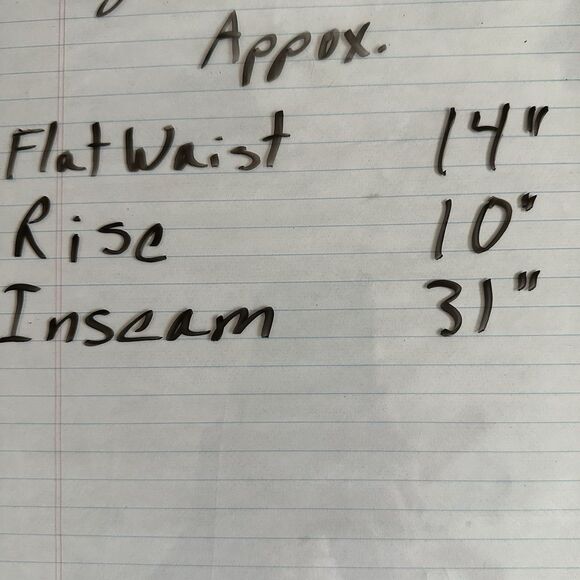 Appox.
Flat Waist 14"
Rise 10"
Inseam 31"